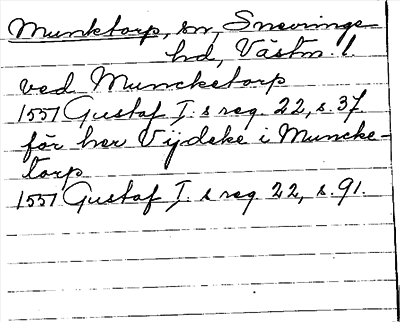 Munktorp, sn, Snevringe
hd, Västm. l.
ved Muncketorp
1551 Gustaf I. s reg. 22, s. 37
för her Vijdeke i Muncke-
torp
1551 Gustaf I. s reg. 22, s. 91.